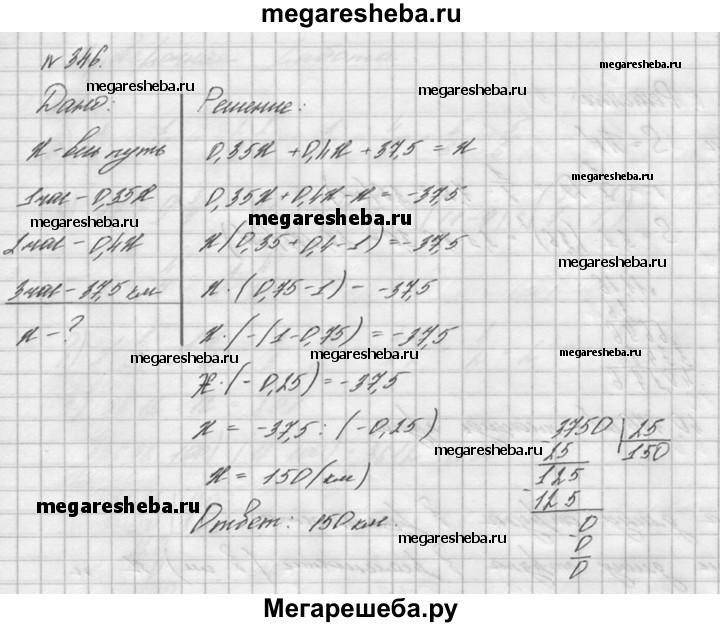 megaresheba.ru
№ 346.
megaresheba.ru
megaresheba.ru
megaresheba.ru
Дано:
Решение:
x - весь путь
0,35x + 0,4x + 37,5 = x
1 час - 0,35x
0,35x + 0,4x - x = -37,5
megaresheba.ru
megaresheba.ru
2 час - 0,4x
x(0,35 + 0,4 - 1) = -37,5
megaresheba.ru
3 час - 37,5 км
x · (0,75 - 1) = -37,5
x - ?
x · (-(1 - 0,75) = -37,5
megaresheba.ru
megaresheba.ru
megaresheba.ru
x · (-0,25) = -37,5
x = -37,5 : (-0,25)
3750 25
megaresheba.ru
25 150
x = 150 (км)
125
megaresheba.ru
125
Ответ: 150 км.
0
megaresheba.ru
0
0
Мегарешеба.ру